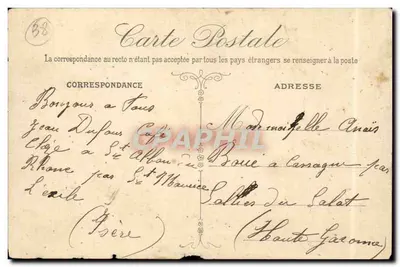 38
Carte Postale
La correspondance au recto n'étant pas acceptée par tous les pays étrangers se renseigner à la poste
CORRESPONDANCE
ADRESSE
Bonjour a Tous
Jean Dufour
a St Alban
Rhone par St Maurice
l'exile
(Isère)
Mademoiselle Anaïs
Boue a Cassagne par
Salies du Salat
(Haute Garonne)
CPARAMA